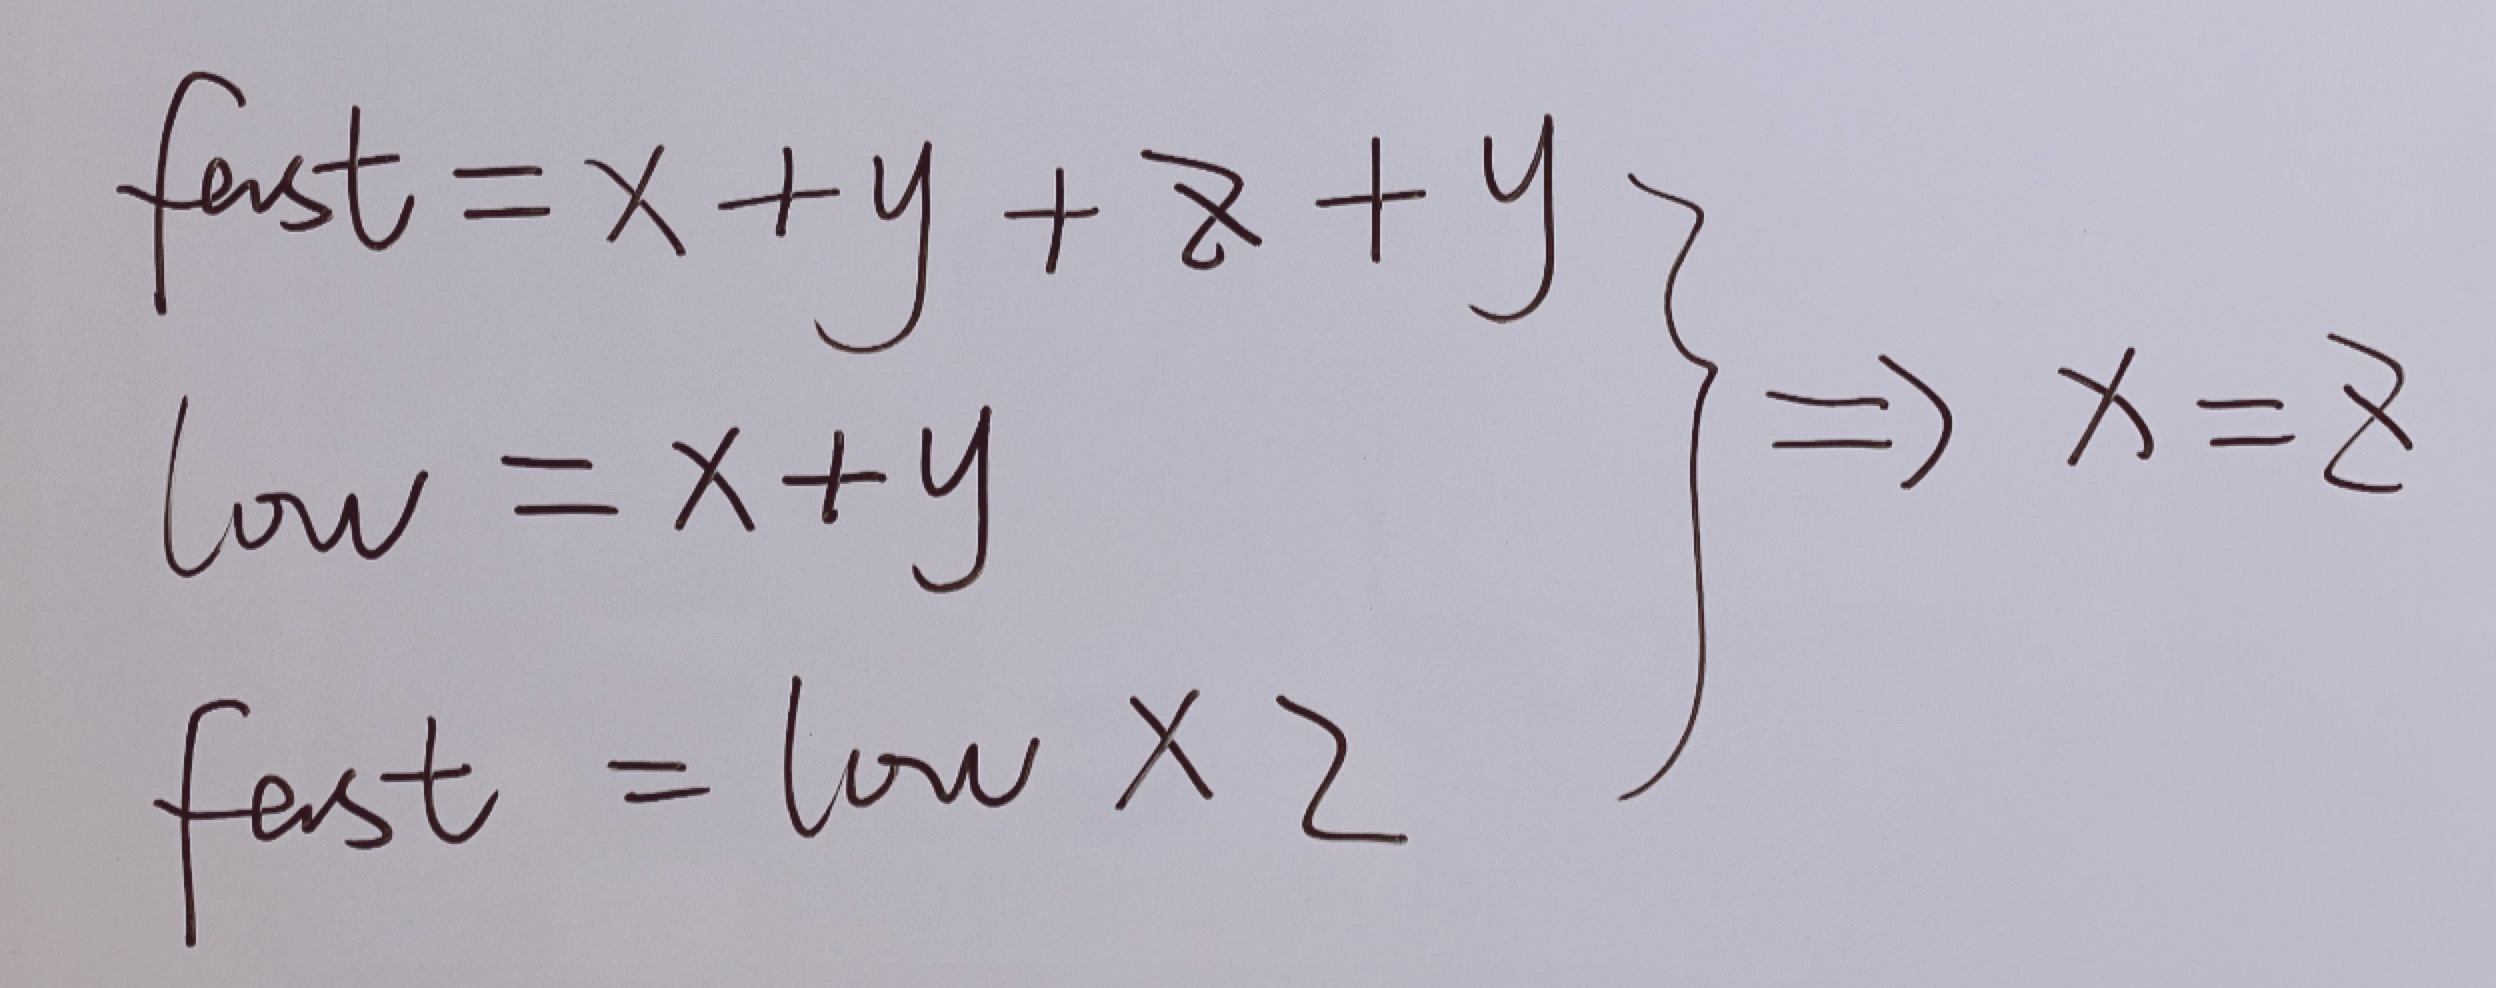 fast = x + y + z + y
low = x + y
fast = low × 2
} ⇒ x = z